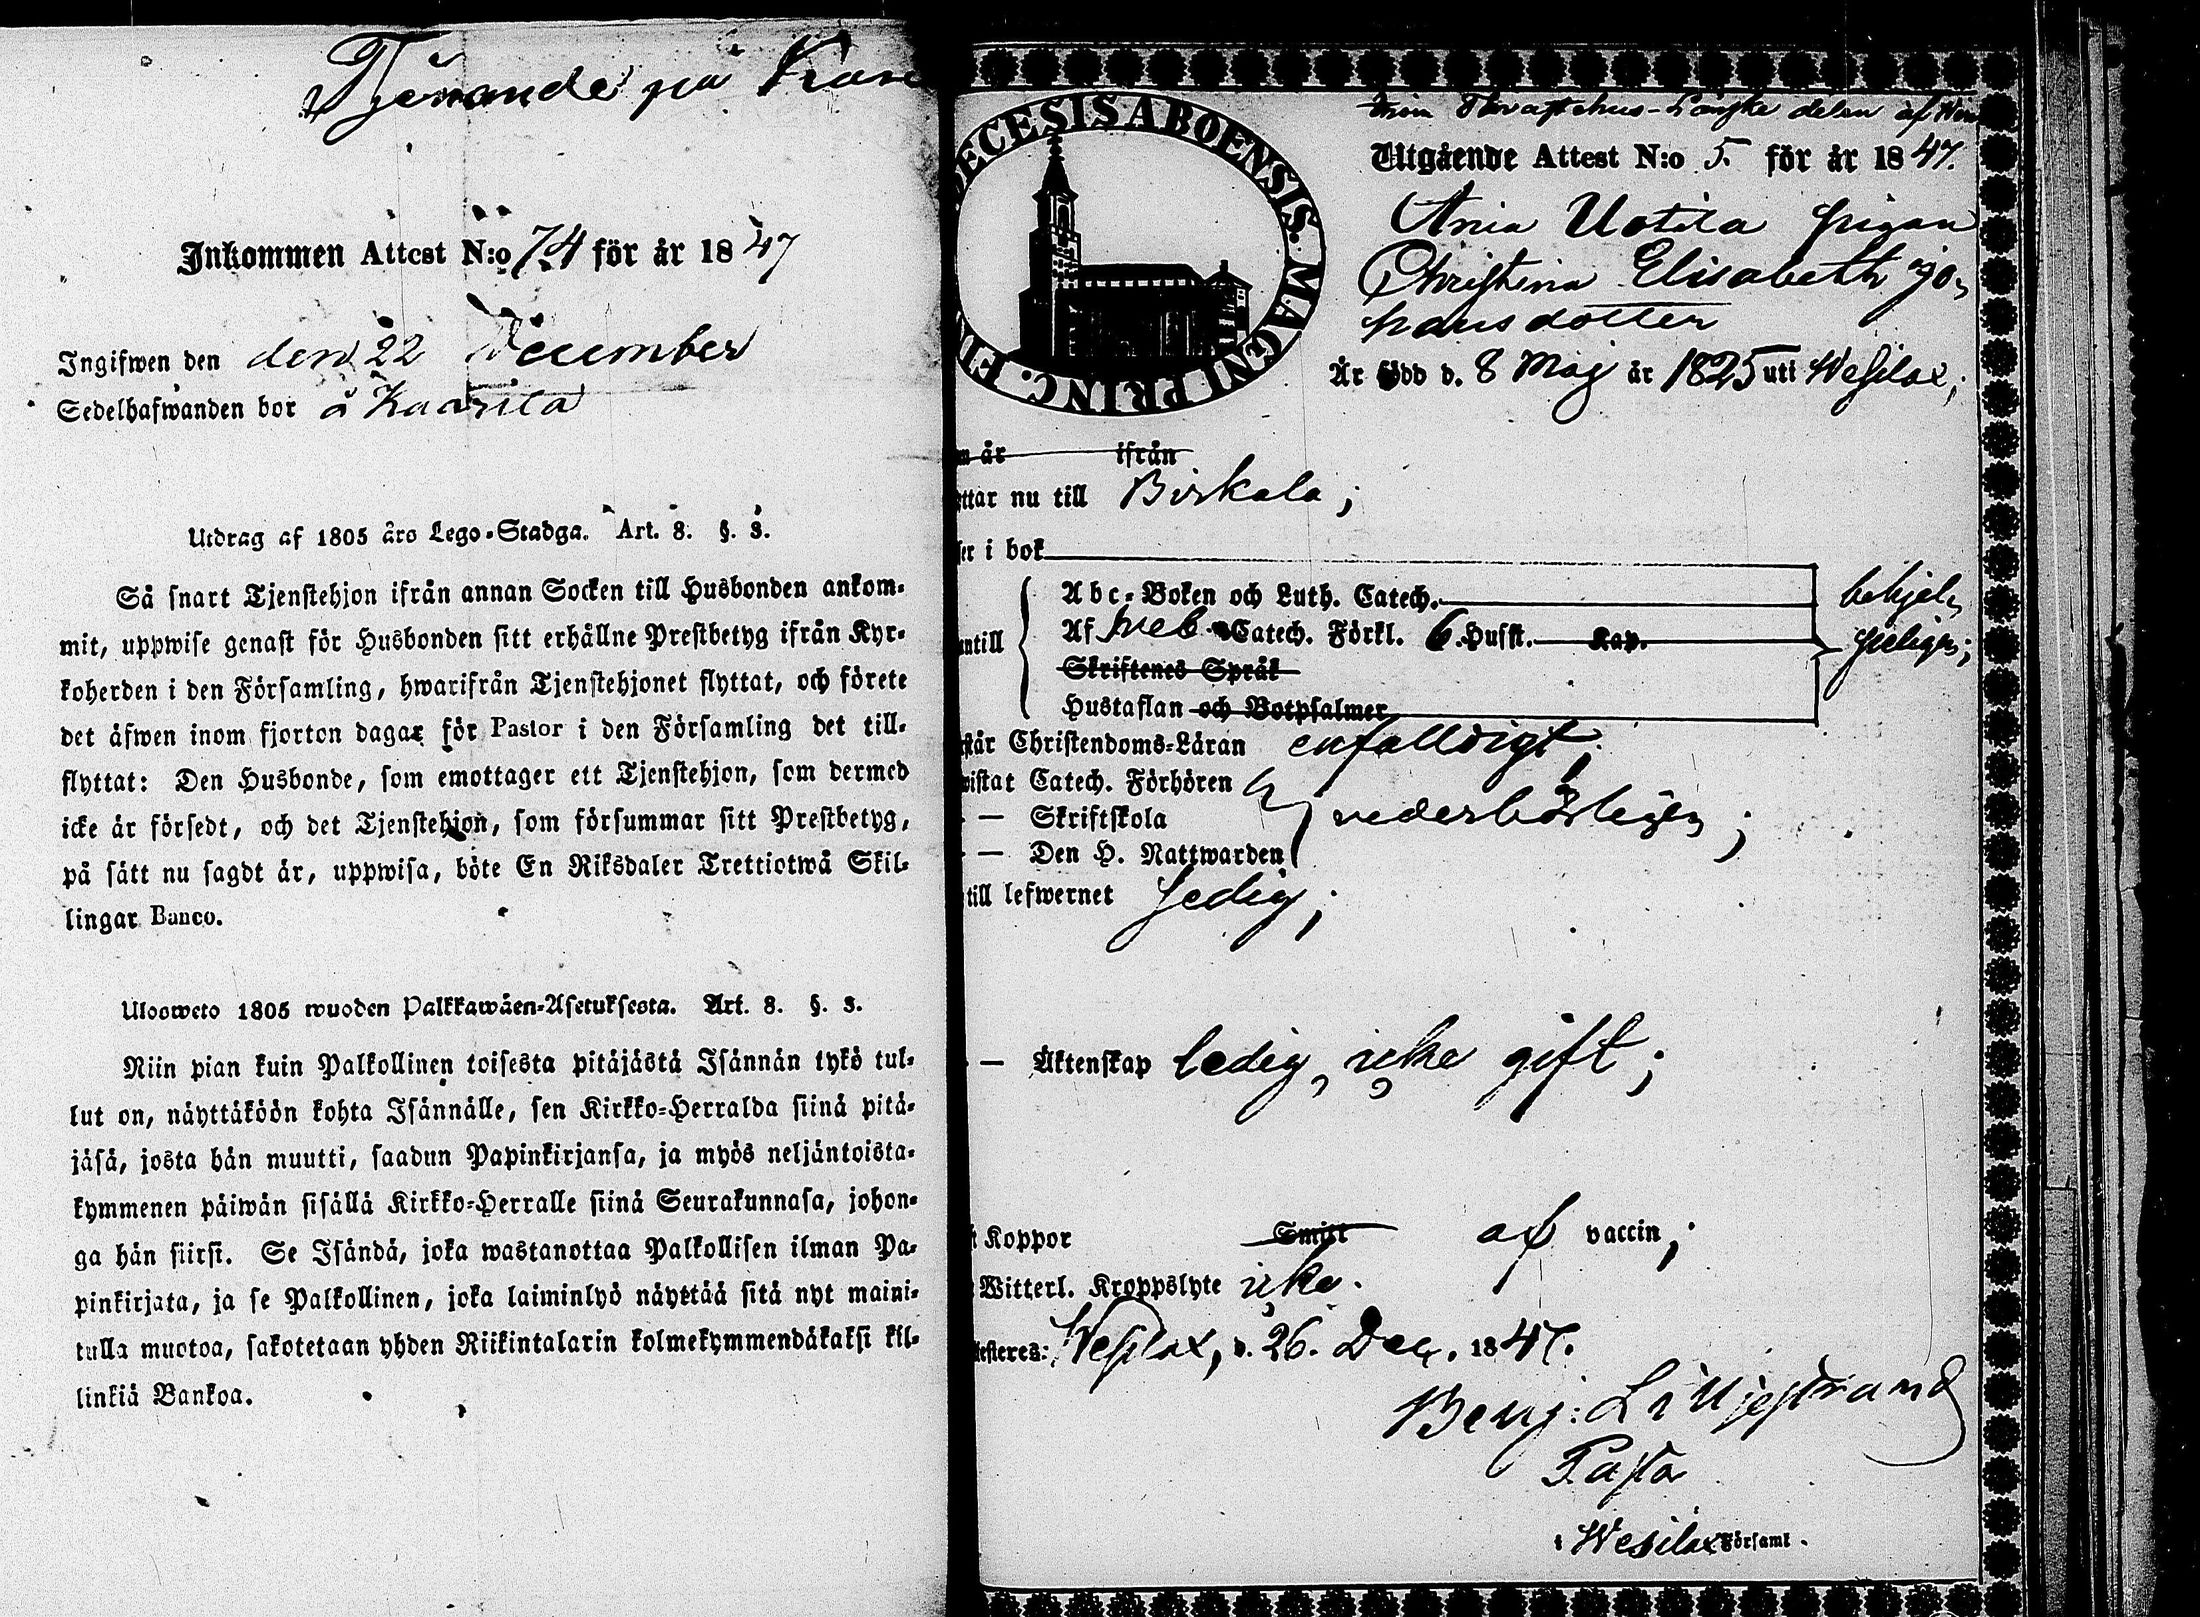 Tjenande på Kaar
Inkommen Attest N:o 74 för år 1847
Ingifwen den den 22 December
Sedelhafwanden bor å Kaarila
Utdrag af 1805 års Lego-Stadga. Art. 8. §. 3.
Så snart Tjenstehjon ifrån annan Socken till Husbonden ankom-
mit, uppwise genast för Husbonden sitt erhållne Prestbetyg ifrån Kyr-
koherden i den Församling, hwarifrån Tjenstehjonet flyttat, och förete
det äfwen inom fjorton dagar för Pastor i den Församling det till-
flyttat: Den Husbonde, som emottager ett Tjenstehjon, som dermed
icke är försedt, och det Tjenstehjon, som försummar sitt Prestbetyg,
på sätt nu sagdt är, uppwisa, böte En Riksdaler Trettiotwå Skil-
lingar Banco.
Ulosweto 1805 wuoden Palkkawäen-Asetuksesta. Art. 8. §. 3.
Niin pian kuin Palkollinen toisesta pitäjästä Isännän tykö tul-
lut on, näyttäköön kohta Isännälle, sen Kirkko-Herralda siinä pitä-
jäsä, josta hän muutti, saadun Papinkirjansa, ja myös neljäntoista-
kymmenen päiwän sisällä Kirkko-Herralle siinä Seurakunnasa, johon-
ga hän siirsi. Se Isändä, joka wastanottaa Palkollisen ilman Pa-
pinkirjata, ja se Palkollinen, joka laiminlyö näyttää sitä nyt maini-
tulla muotoa, sakotetaan yhden Riikintalarin kolmekymmendäkaksi kil-
linkiä Bankoa.
ECESIS ABOENSIS. MAGNI PRINC. FIN
från Tavastehus-Länska delen af Wes
Utgående Attest N:o 5. för år 1847.
Ania Uotila pigan
Christina Elisabeth Jo-
hansdotter
Är född d. 8 Maj år 1825 uti Wesilax;
m år ifrån
ttar nu till Birkala;
ser i bok
Abc-Boken och Luth. Catech. behjel-
ntill Af Sveb. Catech. Förkl. 6. Husst. Kap. peligen;
Skriftenes Språk
Hustaflan och Botpsalmer
står Christendoms-Läran enfalldigt;
wistat Catech. Förhören
— Skriftskola vederbörligen;
— Den H. Nattwarden
till lefwernet Ledig;
— Äktenskap ledig, icke gift;
Koppor Smitt af vaccin;
Witterl. Kroppslyte icke.
esteres: Wesilax, d. 26. Dec. 1847.
Benj: Liljestrand
Pastor
i Wesilax Församl.